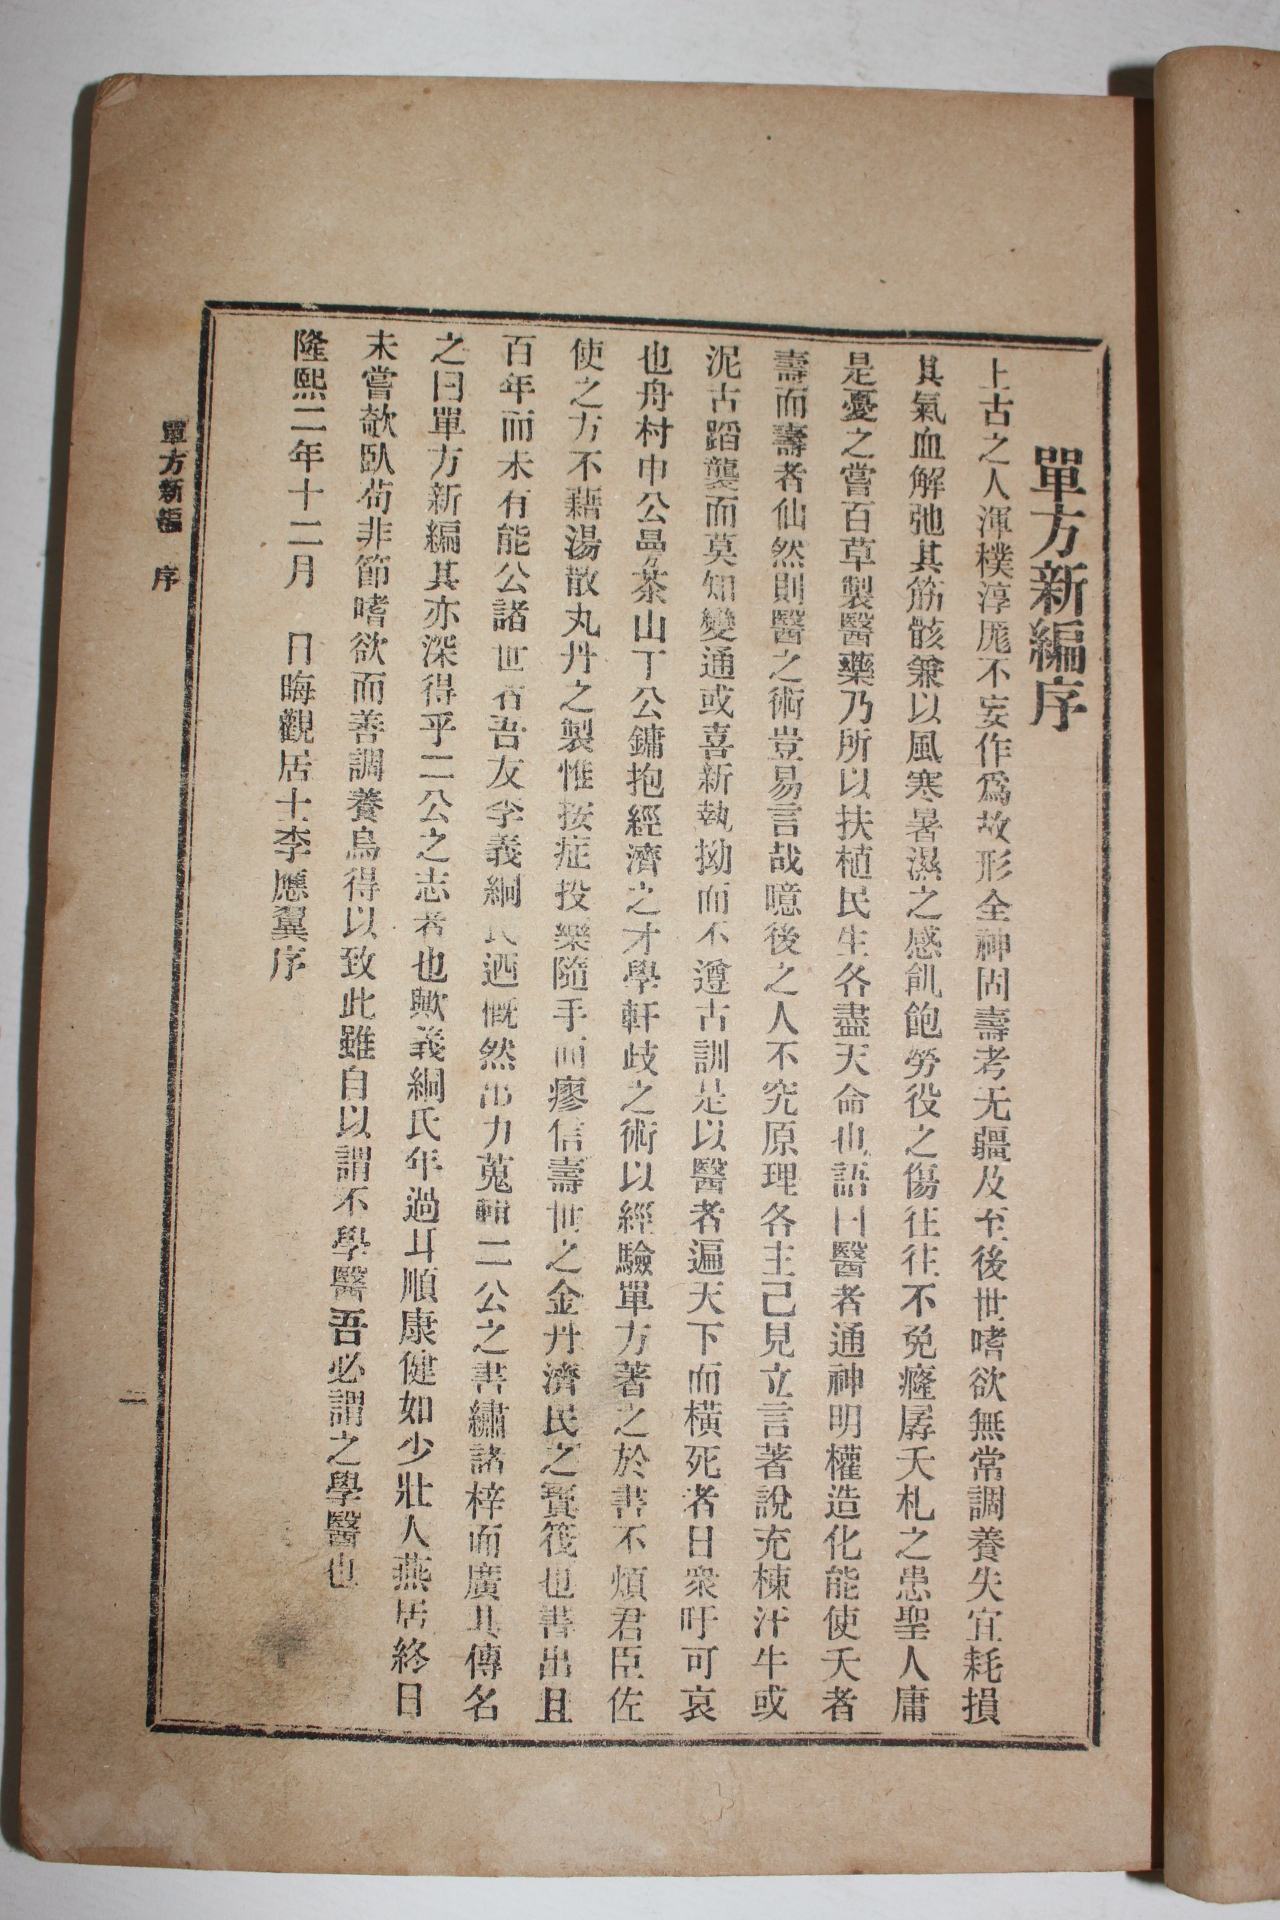 單方新編序
上古之人渾樸淳厖不妄作爲故形全神固壽考无疆及至後世嗜欲無常調養失宜耗損
其氣血解弛其筋骸兼以風寒暑濕之感飢飽勞役之傷往往不免癃孱夭札之患聖人庸
是憂之嘗百草製醫藥乃所以扶植民生各盡天命也語曰醫者通神明權造化能使夭者
壽而壽者仙然則醫之術豈易言哉噫後之人不究原理各主己見立言著說充棟汗牛或
泥古蹈襲而莫知變通或喜新執拗而不遵古訓是以醫者遍天下而橫死者日衆吁可哀
也舟村申公曼茶山丁公鏞抱經濟之才學軒歧之術以經驗單方著之於書不煩君臣佐
使之方不藉湯散丸丹之製惟按症投藥隨手而瘳信壽世之金丹濟民之寶筏也書出且
百年而未有能公諸世者吾友李義絅氏迺慨然出力蒐輯二公之書繡諸梓而廣其傳名
之曰單方新編其亦深得乎二公之志者也歟義絅氏年過耳順康健如少壯人燕居終日
未嘗欹臥苟非節嗜欲而善調養烏得以致此雖自以謂不學醫吾必謂之學醫也
隆熙二年十二月 日晦觀居士李應翼序
單方新編 序
二